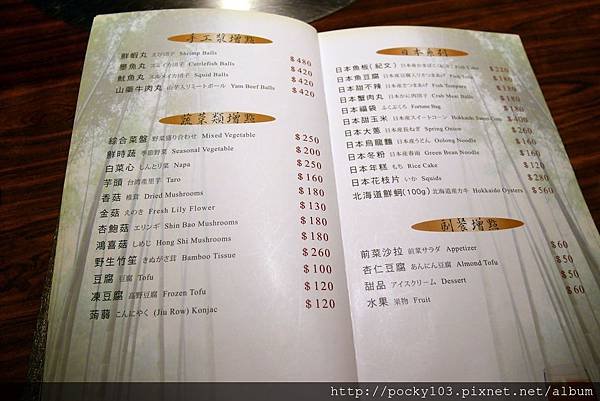 手工漿增點
鮮蝦丸 えび団子 Shrimp Balls $480
墨魚丸 スルメイカ団子 Cuttlefish Balls $420
魷魚丸 スルメイカ団子 Squid Balls $420
山藥牛肉丸 山芋入りミートボール Yam Beef Balls $420
蔬菜類增點
綜合菜盤 野菜盛り合わせ Mixed Vegetable $250
鮮時蔬 季節野菜 Seasonal Vegetable $200
白菜心 しんとり菜 Napa $250
芋頭 台湾産里芋 Taro $160
香菇 椎茸 Dried Mushrooms $180
金菇 えのき Fresh Lily Flower $130
杏鮑菇 エリンギ Shin Bao Mushrooms $180
鴻喜菇 しめじ Hong Shi Mushrooms $180
野生竹笙 きぬがさ茸 Bamboo Tissue $260
豆腐 豆腐 Tofu $100
凍豆腐 高野豆腐 Frozen Tofu $120
蒟蒻 こんにやく (Jiu Row) Konjac $120
日本系列
日本魚板(紀文) $220
日本魚豆腐 Fish Tofu $180
日本甜不辣 Fish Tempura
日本蟹肉丸 日本産かに肉団子 Crab Meat Balls $160
日本福袋 ふくぶくろ Fortune Bag $180
日本甜玉米 日本産スイートコーン Hokkaido Sweet Corn $400
日本大蔥 日本産長ねぎ Spring Onion $260
日本烏龍麵 日本産うどん Oolong Noodle $160
日本冬粉 日本産春雨 Green Bean Noodle $160
日本年糕 もち Rice Cake $120
日本花枝片 いか Squids $280
北海道鮮蚵(100g) 北海道産カキ Hokkaido Oysters $560
副餐增點
前菜沙拉 前菜サラダ Appetizer $60
杏仁豆腐 あんにん豆腐 Almond Tofu $50
甜品 アイスクリーム Dessert $50
水果 果物 Fruit $60
http://pocky103.pixnet.net/album